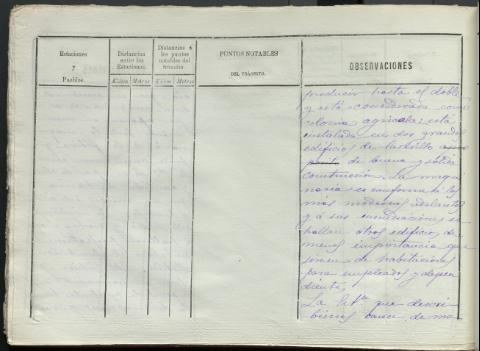 Estaciones
y
Pueblos.
Distancias
entre las
Estaciones.
Kilóm Metros
Distancias á
los puntos
notables del
tránsito.
Kilóm. Metros
PUNTOS NOTABLES
DEL TRÁNSITO.
OBSERVACIONES
producir hasta el doble
y está considerada como
colonia agricola: está
instalada en dos grandes
edificios de ladrillo
de buena y sólida
construccion. La maqui
naria es conforme á los
más modernos adelantos
y á sus inmediaciones se
hallan otros edificios de
menos importancia que
sirven de habitaciones
para empleados y depen
dientes.
La que descri
bimos